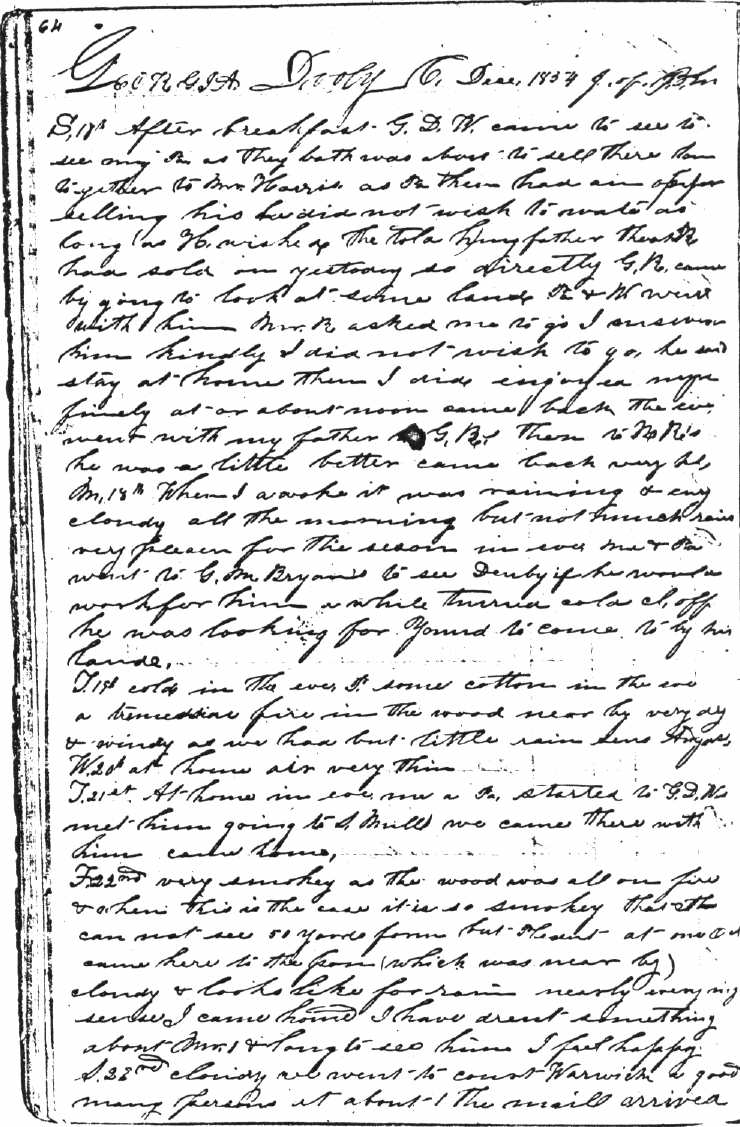 64
GEORGIA Dooly C. Dece, 1854 J. of
S, 17th After breakfast G. D. W. came to see to
see my Pa as they both was about to sell there
together to Mr. Harris as Pa then had an offer for
selling his he did not wish to wate as
long as H. wished The told my father that
had sold on yestoday so directly G. R. came
by going to look at some land Pa & W went
with him Mr. R asked me to go I answer
him kindly I did not wish to go, he said
stay at home then I did enjoyed
finely at or about noon came back the eve
went with my father to G. R. then to
he was a little better came back very
M, 18th When I awoke it was raining &
cloudy all the morning but not much rain
very pleasen for the seson in eve me & Pa
went to G. M. Bryan's to see Denby if he would
work for him a while turned cold cl, off
he was looking for Yound to come to by his
lande,
T. 19th cold in the eve P. some cotton in the eve
a tremendiae fire in the wood near by very dry
& windy as we had but little rain sens
W. 20th at home air very thin
T. 21st. At home in eve. me a Pa, started to G. D. Ws
met him going to S. Mill we came there with
him came home,
F. 22nd very smokey as the wood was all on fire
& when this is the case it is so smokey that
can not see 50 yards form but Plesent at one
came here to the (which was near by)
cloudy & looks like for rain nearly every
sense I came home I have dremt something
about Mr. & long to see him I feel happy
S. 23rd cloudy we went to court Warwick a good
many persons at about 1 the maill arrived